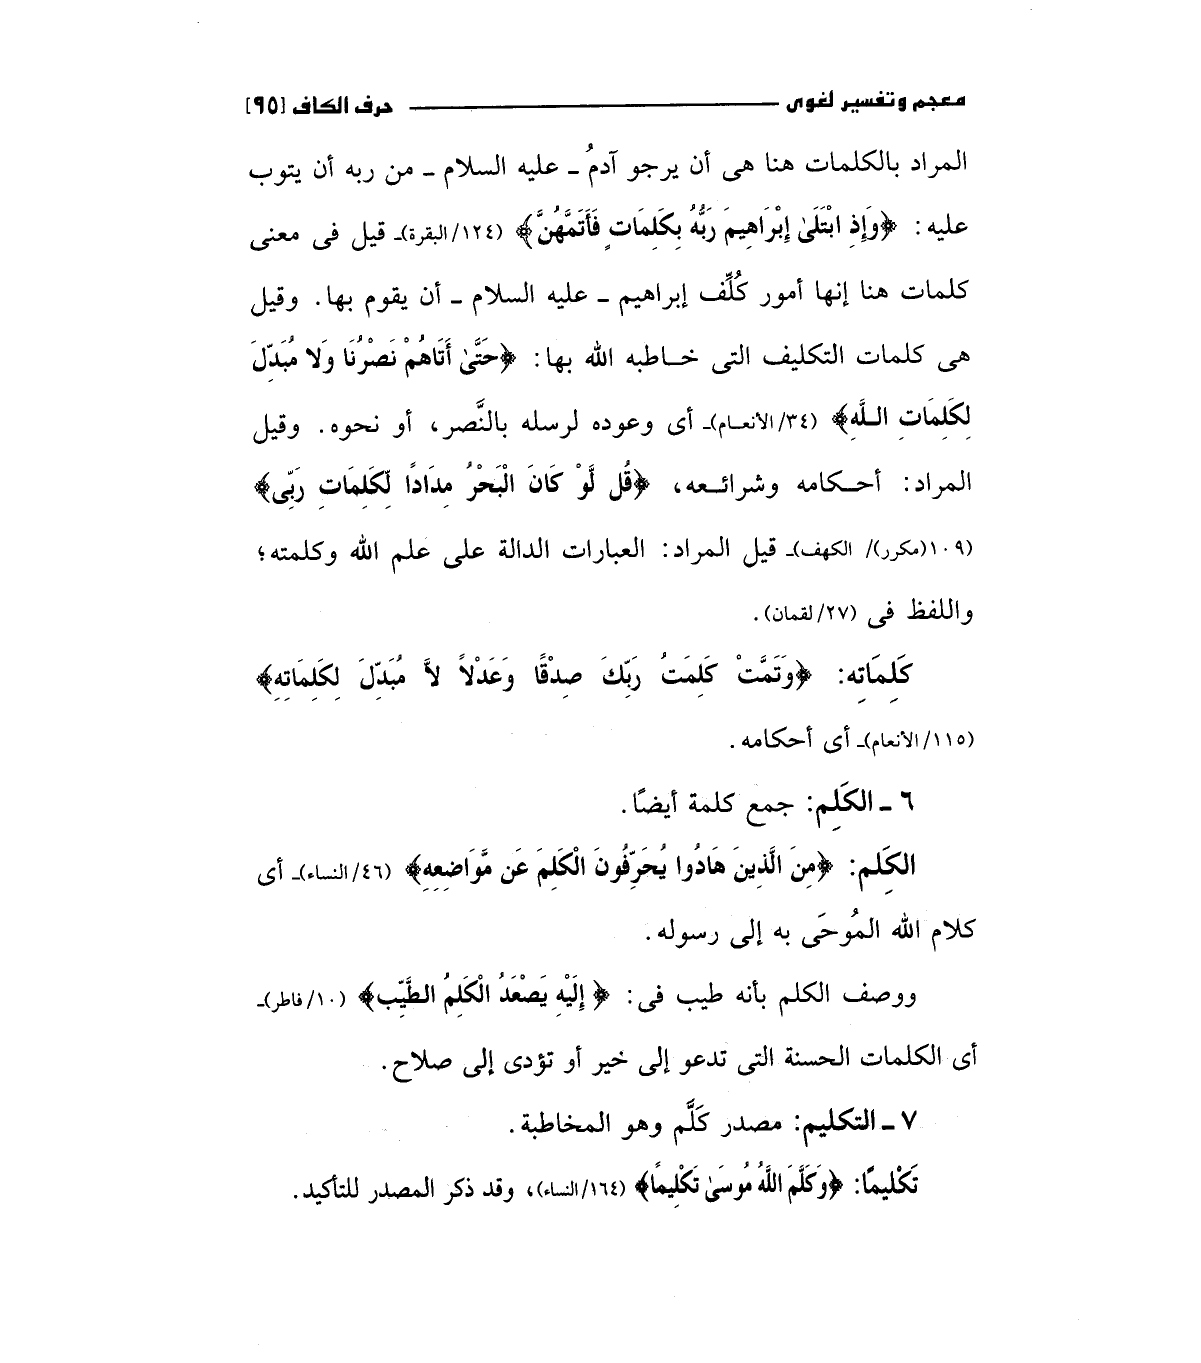 معجم وتفسير لغوى ــــــــــــــ حرف الكاف [٩٥]
المراد بالكلمات هنا هى أن يرجو آدمُ ـ عليه السلام ـ من ربه أن يتوب
عليه: ﴿وَإِذِ ابْتَلَىٰ إِبْرَاهِيمَ رَبُّهُ بِكَلِمَاتٍ فَأَتَمَّهُنَّ﴾ (١٢٤/البقرة)ـ قيل فى معنى
كلمات هنا إنها أمور كُلِّف إبراهيم ـ عليه السلام ـ أن يقوم بها. وقيل
هى كلمات التكليف التى خاطبه الله بها: ﴿حَتَّىٰ أَتَاهُمْ نَصْرُنَا وَلا مُبَدِّلَ
لِكَلِمَاتِ اللَّهِ﴾ (٣٤/الأنعام)ـ أى وعوده لرسله بالنَّصر، أو نحوه. وقيل
المراد: أحكامه وشرائعه، ﴿قُل لَّوْ كَانَ الْبَحْرُ مِدَادًا لِّكَلِمَاتِ رَبِّى﴾
(١٠٩(مكرر)/ الكهف)ـ قيل المراد: العبارات الدالة على علم الله وكلمته؛
واللفظ فى (٢٧/لقمان).
كَلِمَاتِه: ﴿وَتَمَّتْ كَلِمَتُ رَبِّكَ صِدْقًا وَعَدْلاً لاَّ مُبَدِّلَ لِكَلِمَاتِهِ﴾
(١١٥/الأنعام)ـ أى أحكامه.
٦ ـ الكَلِم: جمع كلمة أيضًا.
الكَلِم: ﴿مِنَ الَّذِينَ هَادُوا يُحَرِّفُونَ الْكَلِمَ عَن مَّوَاضِعِهِ﴾ (٤٦/النساء)ـ أى
كلام الله المُوحَى به إلى رسوله.
ووصف الكلم بأنه طيب فى: ﴿إِلَيْهِ يَصْعَدُ الْكَلِمُ الطَّيِّب﴾ (١٠/فاطر)ـ
أى الكلمات الحسنة التى تدعو إلى خير أو تؤدى إلى صلاح.
٧ ـ التكليم: مصدر كَلَّم وهو المخاطبة.
تَكْليمًا: ﴿وَكَلَّمَ اللَّهُ مُوسَىٰ تَكْلِيمًا﴾ (١٦٤/النساء)، وقد ذكر المصدر للتأكيد.